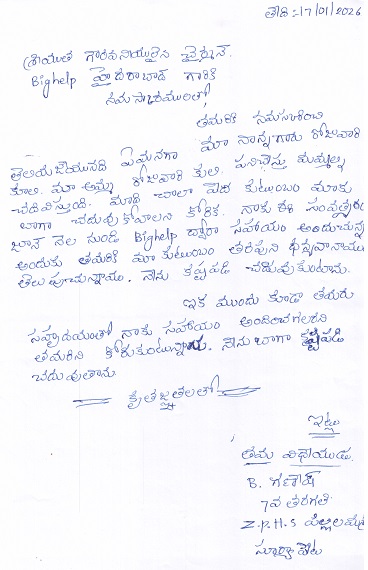 తేది :- 17/01/2026
శ్రీయుత గౌరవనీయులైన చైర్మన్.
Bighelp హైదరాబాద్ గారికి
నమస్కారములతో,
తమరికి నమస్కరించి
తెలియజేయునది ఏమనగా మా నాన్నగారు రోజువారి
కూలి. మా అమ్మ రోజువారి కులి పనిచేస్తు మమ్మల్ని
చదివిస్తుంది. మాది చాలా పేద కుటుంబం మాకు
బాగా చదువుకోవాలని కోరిక. నాకు ఈ సంవత్సరం
జూన్ నెల నుండి Bighelp ద్వారా సహాయం అందుచున్న
అందుకు తమరికి మా కుటుంబం తరపున ధన్యవాదాములు
తెలుపుచున్నాము. నేను కష్టపడి చదువుకుంటాను.
ఇక ముందు కూడా తమరు
సహృదయంతో నాకు సహాయం అందించగలరని
తమరిని కోరుకుంటున్నాను. నేను బాగా కష్టపడి
చదువుతాను
కృతజ్ఞతలతో
ఇట్లు
తమ విధేయుడు.
B. గణేష్
7వ తరగతి
Z.P.H.S పిల్లలమర్రి
సూర్యాపేట